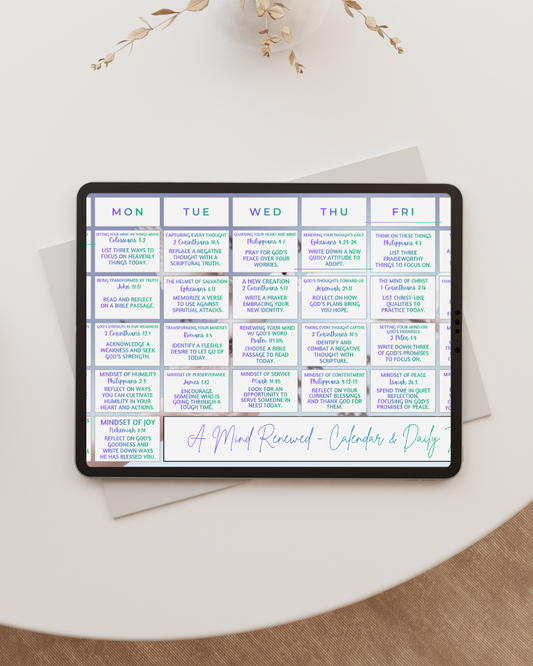 MON TUE WED THU FRI
SETTING YOUR MIND ON THINGS ABOVE
Colossians 3:2
LIST THREE WAYS TO
FOCUS ON HEAVENLY
THINGS TODAY.
CAPTURING EVERY THOUGHT
2 Corinthians 10:5
REPLACE A NEGATIVE
THOUGHT WITH A
SCRIPTURAL TRUTH.
GUARDING YOUR HEART AND MIND
Philippians 4:7
PRAY FOR GOD'S
PEACE OVER YOUR
WORRIES.
RENEWING YOUR THOUGHTS DAILY
Ephesians 4:23-24
WRITE DOWN A NEW
GODLY ATTITUDE TO
ADOPT.
THINK ON THESE THINGS
Philippians 4:8
LIST THREE
PRAISEWORTHY
THINGS TO FOCUS ON.
BEING TRANSFORMED BY TRUTH
John 17:17
READ AND REFLECT
ON A BIBLE PASSAGE.
THE HELMET OF SALVATION
Ephesians 6:17
MEMORIZE A VERSE
TO USE AGAINST
SPIRITUAL ATTACKS.
A NEW CREATION
2 Corinthians 5:17
WRITE A PRAYER
EMBRACING YOUR
NEW IDENTITY.
GOD'S THOUGHTS TOWARD US
Jeremiah 29:11
REFLECT ON HOW
GOD'S PLANS BRING
YOU HOPE.
THE MIND OF CHRIST
1 Corinthians 2:16
LIST CHRIST-LIKE
QUALITIES TO
PRACTICE TODAY.
GOD'S STRENGTH IN OUR WEAKNESS
2 Corinthians 12:9
ACKNOWLEDGE A
WEAKNESS AND SEEK
GOD'S STRENGTH.
TRANSFORMING YOUR MINDSET
Romans 8:5
IDENTIFY A FLESHLY
DESIRE TO LET GO OF
TODAY.
RENEWING YOUR MIND
W/ GOD'S WORD
Psalm 119:105
CHOOSE A BIBLE
PASSAGE TO READ
TODAY.
TAKING EVERY THOUGHT CAPTIVE
2 Corinthians 10:5
IDENTIFY AND
COMBAT A NEGATIVE
THOUGHT WITH
SCRIPTURE.
SETTING YOUR MIND ON
GOD'S PROMISES
2 Peter 1:4
WRITE DOWN THREE
OF GOD'S PROMISES
TO FOCUS ON.
MINDSET OF HUMILITY
Philippians 2:3
REFLECT ON WAYS
YOU CAN CULTIVATE
HUMILITY IN YOUR
HEART AND ACTIONS.
MINDSET OF PERSEVERANCE
James 1:12
ENCOURAGE
SOMEONE WHO IS
GOING THROUGH A
TOUGH TIME.
MINDSET OF SERVICE
Mark 10:45
LOOK FOR AN
OPPORTUNITY TO
SERVE SOMEONE IN
NEED TODAY.
MINDSET OF CONTENTMENT
Philippians 4:12-13
REFLECT ON YOUR
CURRENT BLESSINGS
AND THANK GOD FOR
THEM.
MINDSET OF PEACE
Isaiah 26:3
SPEND TIME IN QUIET
REFLECTION,
FOCUSING ON GOD'S
PROMISES OF PEACE.
MINDSET OF JOY
Nehemiah 8:10
REFLECT ON GOD'S
GOODNESS AND
WRITE DOWN WAYS
HE HAS BLESSED YOU.
A Mind Renewed - Calendar & Daily